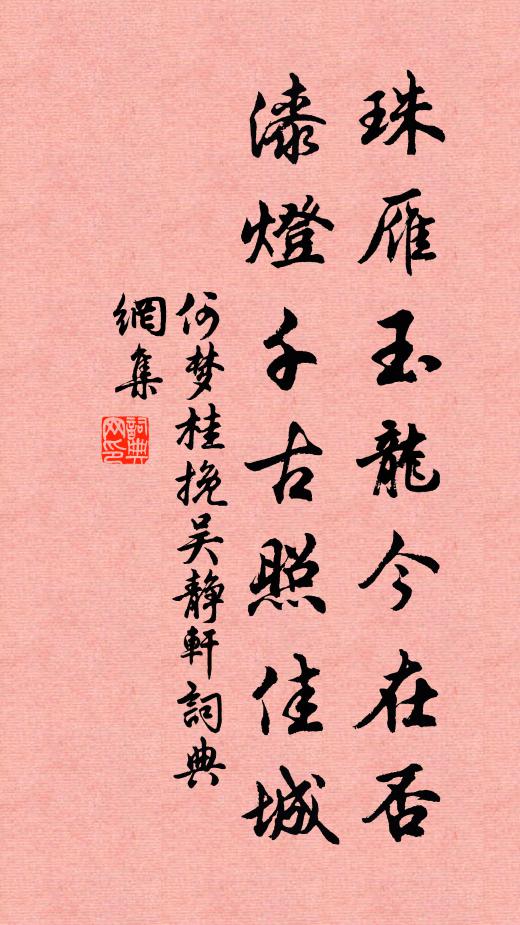 珠雁玉龍今在否
漆燈千古照佳城
何梦桂挽吴静軒詞典
網集
詞典网印